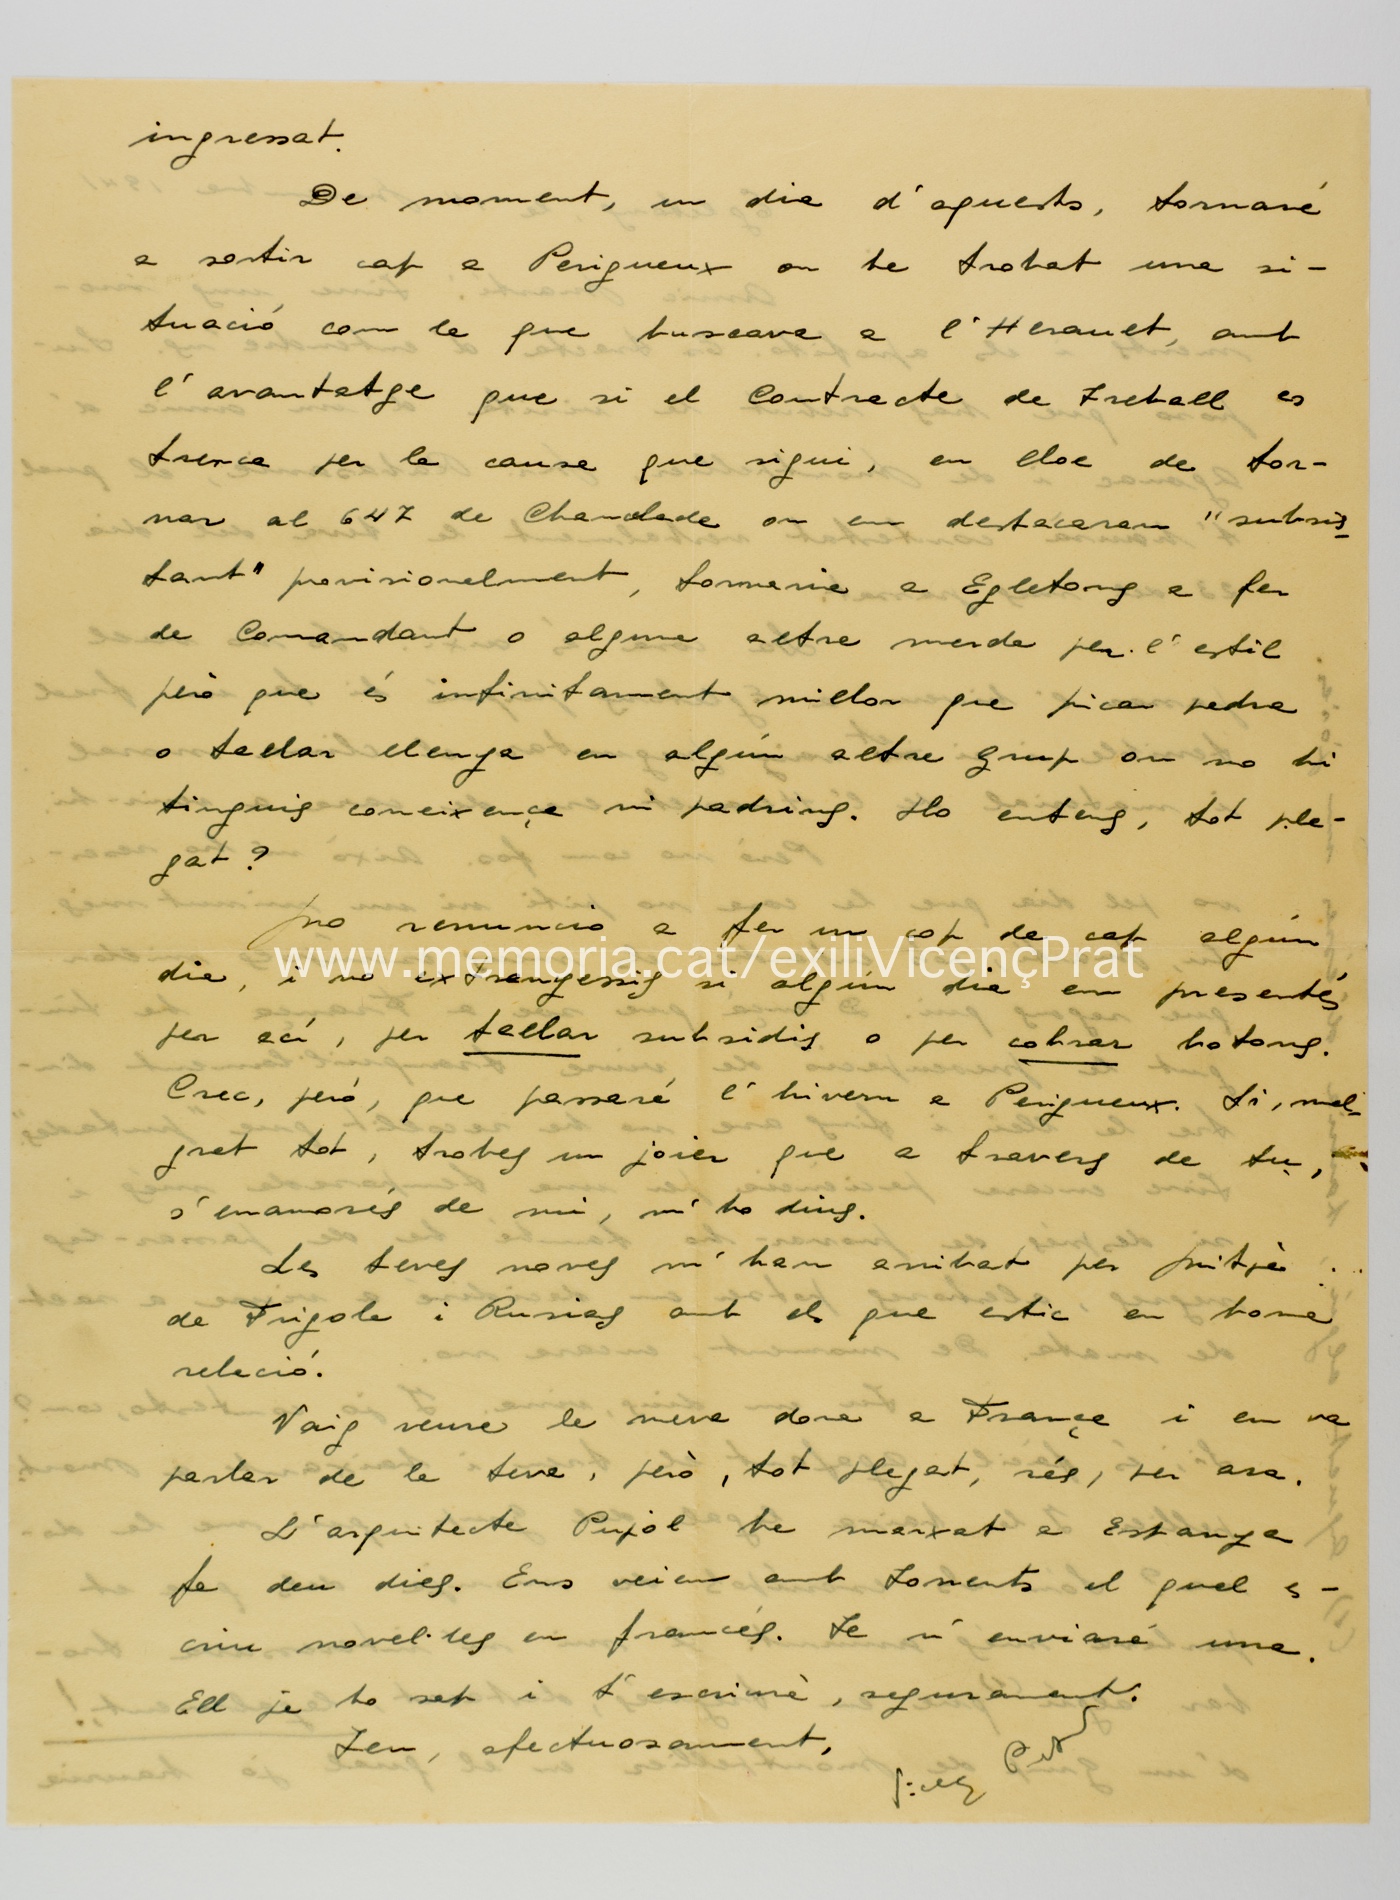 ingressat.
De moment, un dia d'aquests, tornaré
a sortir cap a Perigueux on he trobat una si-
tuació com la que buscava a l'Herault, amb
l'avantatge que si el Contracte de Treball es
trenca per la causa que sigui, en lloc de tor-
nar al 647 de Chancelade on em destacaran "subsis
tant" provisionalment, tornaria a Egletons a fer
de Comandant o alguna altre merda per l'estil
però que és infinitament millor que picar pedra
o tallar llenya en algún altre grup on no hi
tinguis coneixença ni padrins. Ho entens, tot ple-
gat?
No renuncio a fer un cop de cap algún
dia, i no extranyessis si algún dia em presentés
per ací, per tallar subsidis o per cobrar botons.
Crec, però, que passaré l'hivern a Perigueux. Si, mal-
grat tot, trobes un joier que a travers de tu,
s'enamorés de mi, m'ho dius.
Les teves noves m'han arribat per mitjà
de Frigola i Rusias amb els que estic en bona
relació.
Vaig veure la meva dona a França i em va
parlar de la teva, però, tot plegat, rés, per ara.
L'arquitecte Pujol ha marxat a Estanya
fa deu dies. Ens veiem amb Torrents el qual es-
criu novel·les en francés. Te n'enviaré una.
Ell ja ho sap i t'escriurà, segurament.
Teu, afectuosament,
www.memoria.cat/exiliVicençPrat